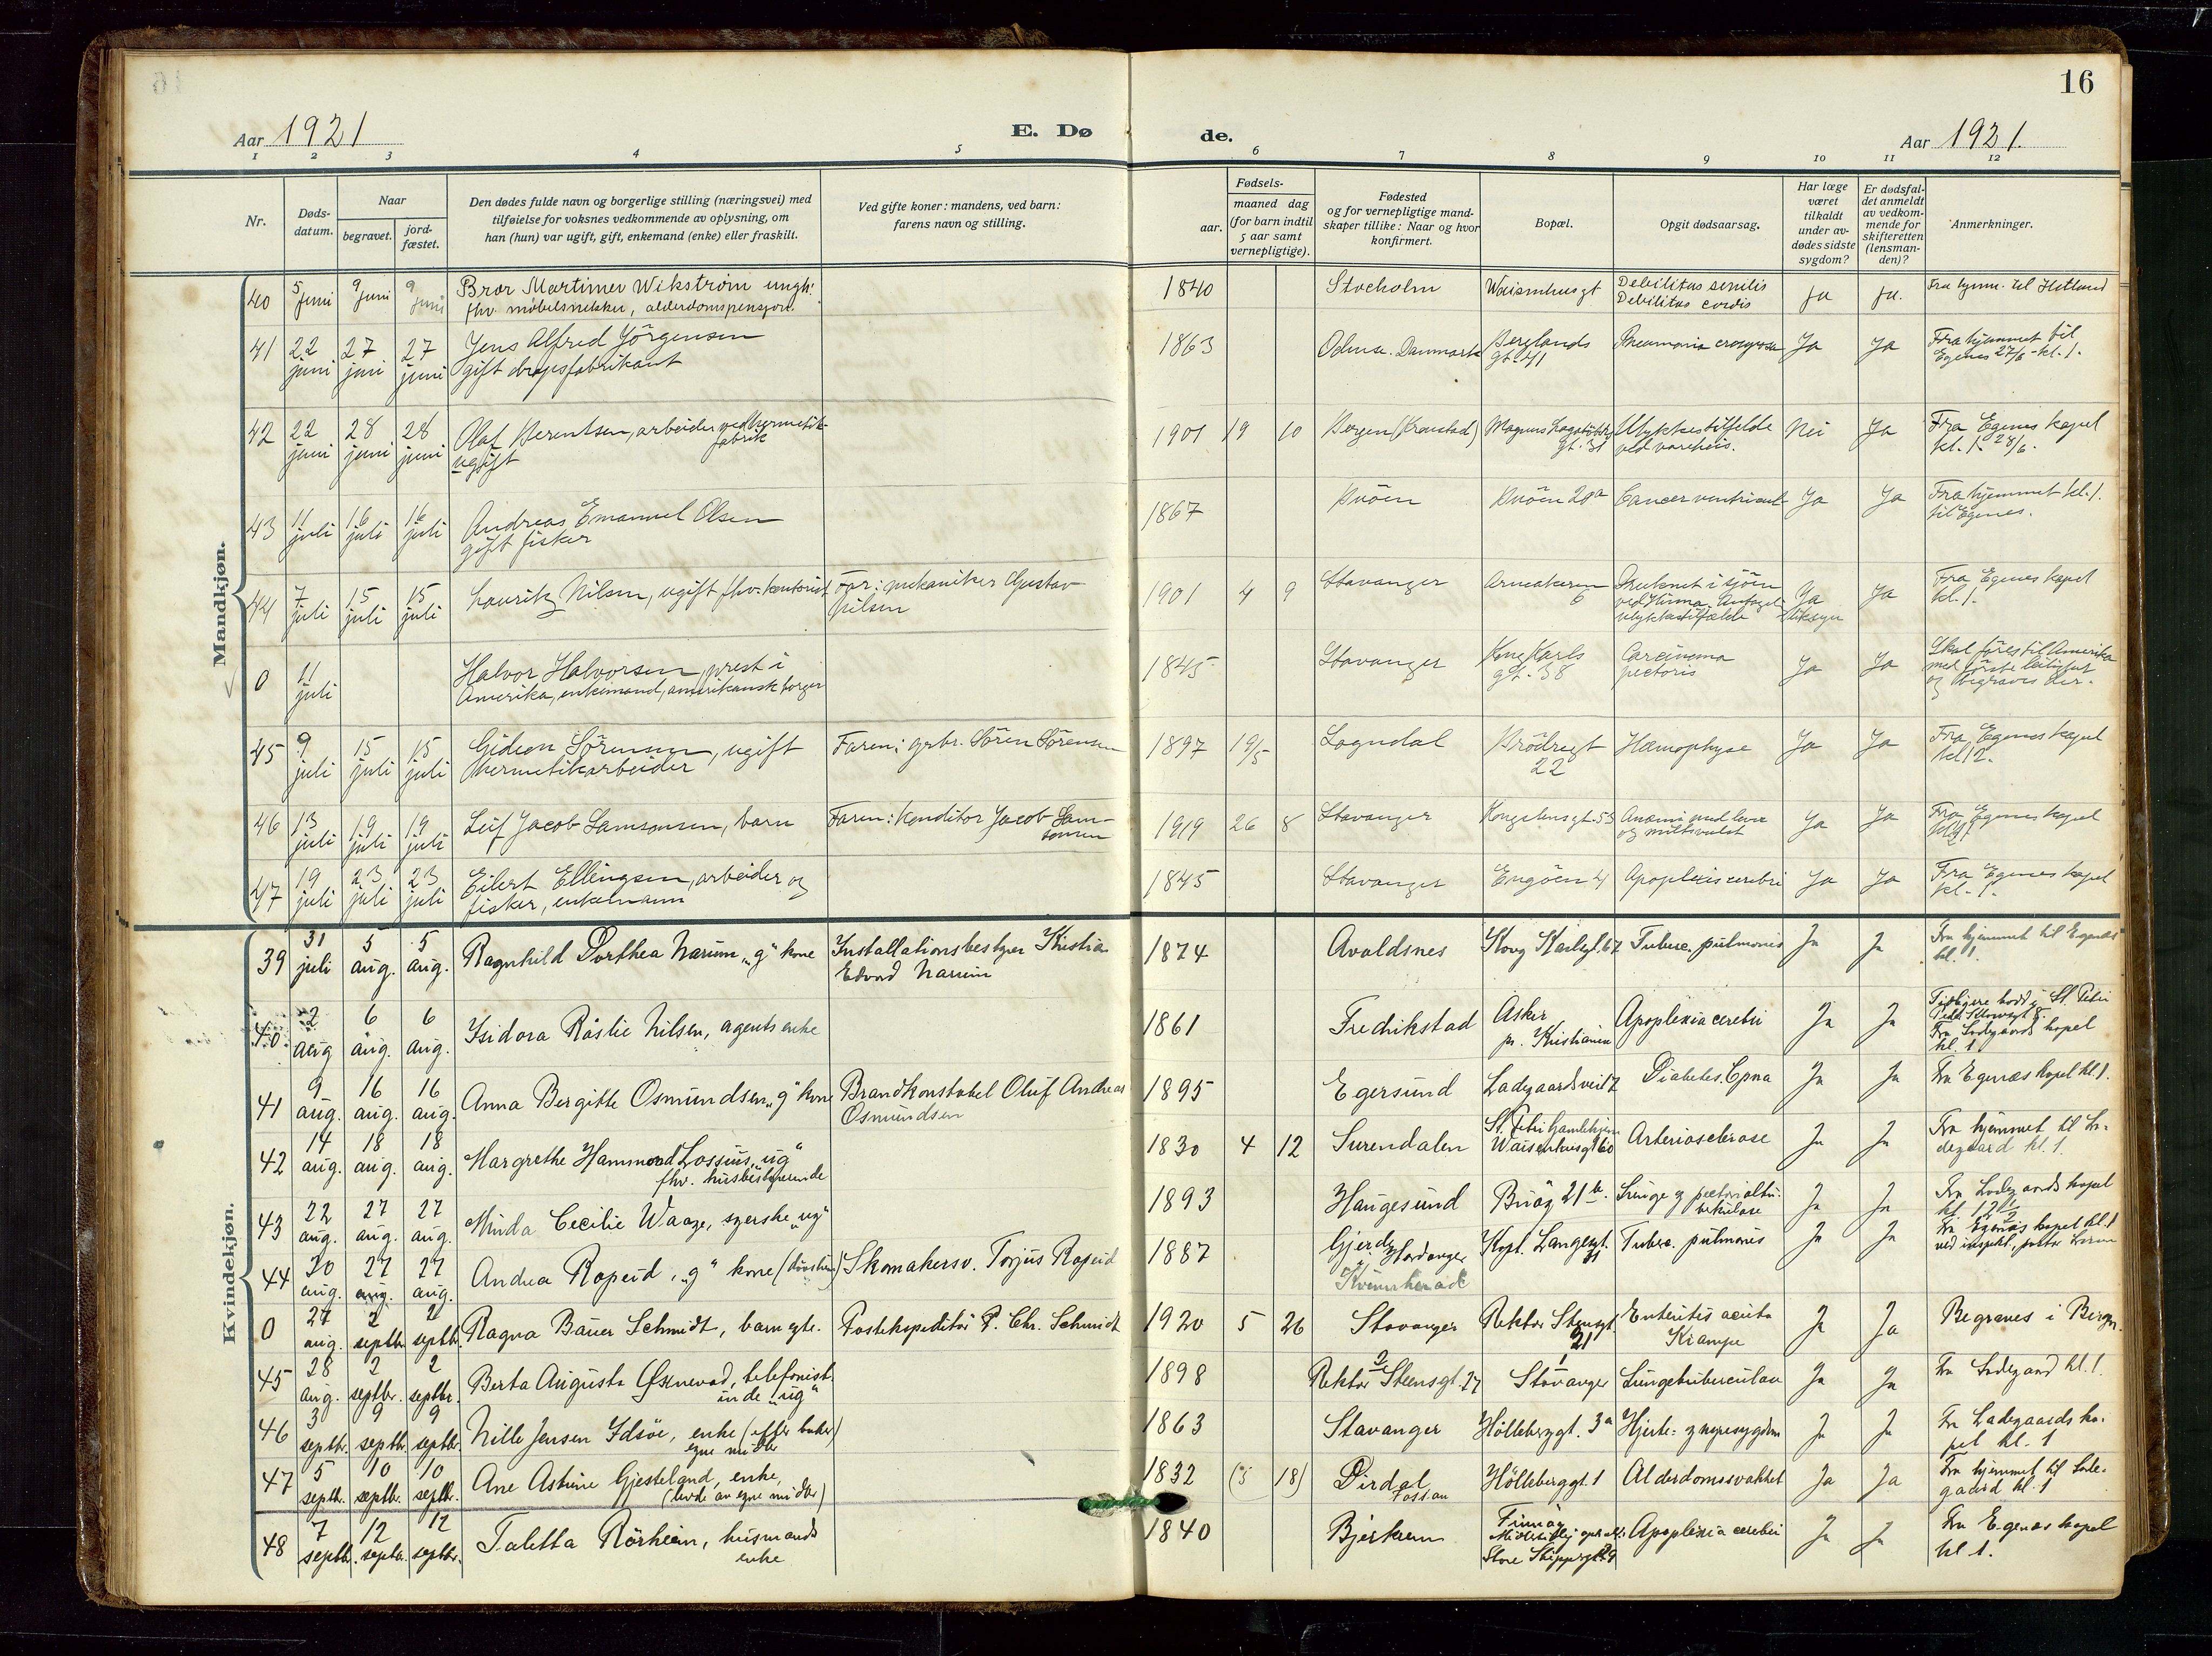 16
Aar 1921
E. Dø
de.
Aar 1921.
1 2 3 4 5 6 7 8 9 10 11 12
Nr.
Døds-
datum.
Naar
begravet.
jord-
fæstet.
Den dødes fulde navn og borgerlige stilling (næringsvei) med
tilføielse for voksnes vedkommende av oplysning, om
han (hun) var ugift, gift, enkemand (enke) eller fraskilt.
Ved gifte koner: mandens, ved barn:
farens navn og stilling.
Fødsels-
aar.
maaned dag
(for barn indtil
5 aar samt
vernepligtige).
Fødested
og for vernepligtige mand-
skaper tillike: Naar og hvor
konfirmert.
Bopæl.
Opgit dødsaarsag.
Har læge
været
tilkaldt
under av-
dødes sidste
sygdom?
Er dødsfal-
det anmeldt
av vedkom-
mende for
skifteretten
(lensman-
den)?
Anmerkninger.
Mandkjøn.
40 5 juni 9 juni 9 juni Bror Martimer Wikstrøm ungk.
fhv. møbelsnekker, alderdomspensjon.
1840 Stocholm Waisenhusgt Debilitas senilis
Debilitas cordis ja ja. Fra hjemm. til Hetland
41 22 juni 27 juni 27 juni Jens Alfred Jörgensen
gift dropsfabrikant
1863 Odense. Danmark Berglands
gt. 41 Pneumonia crouposa Ja Ja Fra hjemmet til
Egenes 27/6 - kl. 1.
42 22 juni 28 juni 28 juni Olaf Berentsen, arbeider ved hermetik-
fabrik
ugift
1901 19 10 Bergen Magnus Lagabøters
gt. 31 Ulykkestilfelde
ved vareheis. Nei Ja Fra Egenes kapel
kl. 1. 28/6.
43 11 juli 16 juli 16 juli Andreas Emanuel Olsen
gift fisker
1867 Buöen Buöen 20a Cancer ventriculi Ja Ja Fra hjemmet kl. 1.
til Egenes.
44 7 juli 15 juli 15 juli Lauritz Nilsen, ugift fhv. kontorist Far: mekaniker Gustav
Nilsen
1901 4 9 Stavanger Arneakeren
6 Druknet i sjöen
ved Hinna. Antagel.
ulykkestilfælde Ja
Liksyn Ja Fra Egenes kapel
kl. 1.
0 11 juli Halvor Halvorsen, prest i
Amerika, enkemand, amerikansk borger
1845 Stavanger Kong Karls
gt. 38 Carcinoma
pectoris Ja Ja Skal föres til Amerika
med förste leilighet
og begraves der.
45 9 juli 15 juli 15 juli Gideon Sörensen, ugift
hermetikarbeider Faren: grbr. Sören Sörensen
1897 19/5 Sogndal Brödregt
22 Hæmophyse Ja Ja Fra Egenes kapel
kl 12.
46 13 juli 19 juli 19 juli Leif Jacob Samsonsen, barn Faren: Konditor Jacob Sam-
sonsen
1919 26 8 Stavanger Kongstensgt. 53 Anæmi med lever
og miltsvulst Ja Ja Fra Egenes kapel
47 19 juli 23 juli 23 juli Eilert Ellingsen, arbeider og
fisker, enkemann
1845 Stavanger Engöen 4 Apoplexis cerebri Ja Ja Fra Egenes kapel
kl. 1.
Kvindekjøn.
39 31 juli 5 aug. 5 aug. Ragnhild Dorthea Narum „g“ kone Installationsbestyrer Kristian
Edvard Narum
1874 Avaldsnes Kong Karlsgt. 67 Tuberc. pulmonis Ja Ja Fra hjemmet til Egenæs
kl. 1.
40 2 aug 6 aug. 6 aug. Ysidora Råslie Nilsen, agents enke
1861 Fredrikstad Asker
pr. Kristiania Apoplexia cerebri Ja Ja Tidligere bodd i St. Petri
Fra Ladegaards kapel
kl. 1
41 9 aug. 16 aug. 16 aug. Anna Bergitte Osmundsen „g“ kone Brandkonstabel Oluf Andreas
Osmundsen
1895 Egersund Ladegaardsvei 17 Diabetes. Coma Ja Ja Fra Egenæs kapel kl. 1.
42 14 aug. 18 aug. 18 aug. Margrethe Hammond Lossius „ug“
fhv. husbestyrerinde
1830 4 12 Surendalen St. Petri Gamlehjem
Waisenhusgt 60 Arteriosclerose Ja Ja Fra hjemmet til La-
degaard kl. 1.
43 22 aug. 27 aug. 27 aug. Minda Cecilie Waage, syerske „ug“
1893 Haugesund Buøy 21b. Ja Ja Fra Ladegaards kapel
kl 12½
44 20 aug. 27 aug. 27 aug. Andrea Ropeid, „g“ kone Skomakersv. Torjus Ropeid
1887 Gjerde Hardanger
Kvinnherad Kapt. Langesgt.
31 Tuberc. pulmonis Ja Ja Fra Egenæs kapel kl. 1
0 27 aug. 2 septbr. 2 septbr. Ragna Bauer Schmidt, barn egte. Postekspeditør P. Chr. Schmidt
1920 5 26 Stavanger Rektor Steensgt.
21 Enteritis acuta
Krampe Ja Ja Begraves i Bergen.
45 28 aug. 2 septbr. 2 septbr. Berta Augusta Øxnevad, telefonist-
inde „ug“
1898 Rektor Steensgt. 27 Stavanger Lungetuberculose Ja Ja Fra Ladegaard kl. 1.
46 3 septbr. 9 septbr. 9 septbr. Nille Jensen Idsöe, enke (efter baker)
egne midler
1863 Stavanger Hölleberggt. 3a Hjerte- og nyresygdom Ja Ja Fra Ladegaards ka-
pel kl. 1
47 5 septbr. 10 septbr. 10 septbr. Ane Astrine Gjesteland, enke,
(levde av egne midler)
1832 (5 18) Dirdal
Fossan Hölleberggt. 1 Alderdomssvakhet Ja Ja Fra hjemmet til Lade-
gaard kl. 1
48 7 septbr. 12 septbr. 12 septbr. Taletta Rörheim, husmands
enke
1840 Bjerkreim Finnøy
Store Skippergt. 29 Apoplexia cerebri Ja Ja Fra Egenæs kapel
kl 1.